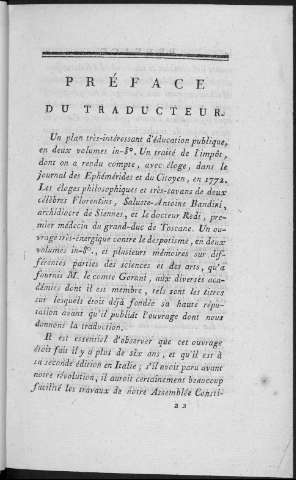 PRÉFACE
DU TRADUCTEUR.
Un plan très-intéressant d'éducation publique,
en deux volumes in-8°. Un traité de l'impôt,
dont on a rendu compte, avec éloge, dans le
journal des Ephémérides et du Citoyen, en 1772.
Les éloges philosophiques et très-savans de deux
célèbres Florentins, Saluste-Antoine Bandini,
archidiacre de Siennes, et le docteur Redi, pre-
mier médecin du grand-duc de Toscane. Un ou-
vrage très-énergique contre le despotisme, en deux
volumes in-8°., et plusieurs mémoires sur dif-
férentes parties des sciences et des arts, qu'a
fournis M. le comte Gorani, aux diverses aca-
démies dont il est membre, tels sont les titres
sur lesquels étoit déjà fondée sa haute répu-
tation avant qu'il publiât l'ouvrage dont nous
donnons la traduction.
Il est essentiel d'observer que cet ouvrage
étoit fait il y a plus de six ans, et qu'il est à
sa seconde édition en Italie; s'il avoit paru avant
notre révolution, il auroit certainement beaucoup
facilité les travaux de notre Assemblée Consti-
a 2